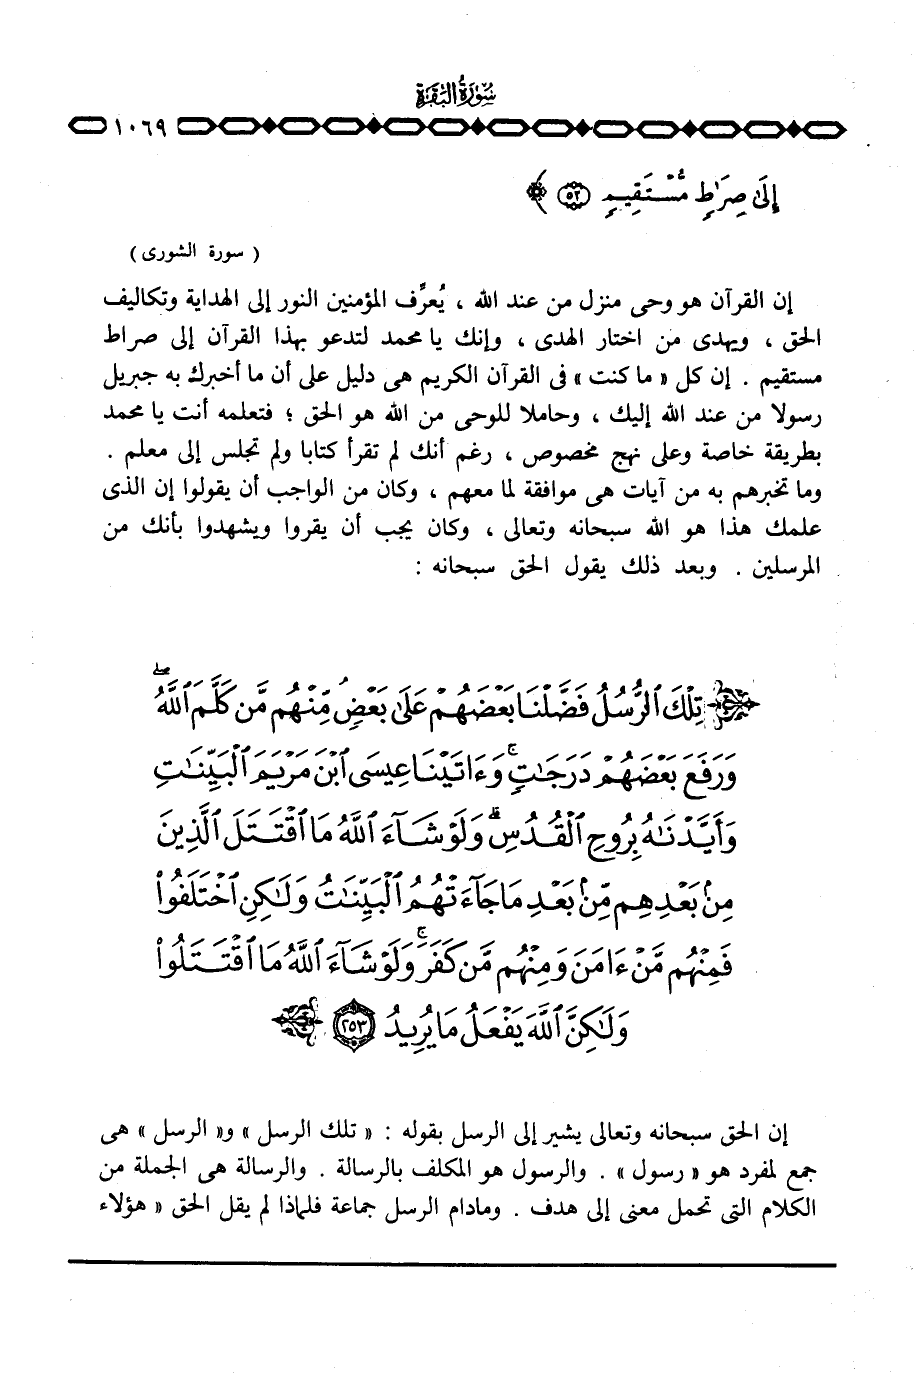 سُورَةُ البَقَرَة
١٠٦٩
إِلَىٰ صِرَٰطٍ مُّسْتَقِيمٍ ﴿٥٢﴾ ﴾
( سورة الشورى )
إن القرآن هو وحى منزل من عند الله ، يُعرِّف المؤمنين النور إلى الهداية وتكاليف
الحق ، ويهدى من اختار الهدى ، وإنك يا محمد لتدعو بهذا القرآن إلى صراط
مستقيم . إن كل « ما كنت » فى القرآن الكريم هى دليل على أن ما أخبرك به جبريل
رسولا من عند الله إليك ، وحاملا للوحى من الله هو الحق ؛ فتعلمه أنت يا محمد
بطريقة خاصة وعلى نهج مخصوص ، رغم أنك لم تقرأ كتابا ولم تجلس إلى معلم .
وما تخبرهم به من آيات هى موافقة لما معهم ، وكان من الواجب أن يقولوا إن الذى
علمك هذا هو الله سبحانه وتعالى ، وكان يجب أن يقروا ويشهدوا بأنك من
المرسلين . وبعد ذلك يقول الحق سبحانه :
تِلْكَ ٱلرُّسُلُ فَضَّلْنَا بَعْضَهُمْ عَلَىٰ بَعْضٍ ۘ مِّنْهُم مَّن كَلَّمَ ٱللَّهُ ۖ
وَرَفَعَ بَعْضَهُمْ دَرَجَٰتٍ ۚ وَءَاتَيْنَا عِيسَى ٱبْنَ مَرْيَمَ ٱلْبَيِّنَٰتِ
وَأَيَّدْنَٰهُ بِرُوحِ ٱلْقُدُسِ ۗ وَلَوْ شَآءَ ٱللَّهُ مَا ٱقْتَتَلَ ٱلَّذِينَ
مِنۢ بَعْدِهِم مِّنۢ بَعْدِ مَا جَآءَتْهُمُ ٱلْبَيِّنَٰتُ وَلَٰكِنِ ٱخْتَلَفُوا۟
فَمِنْهُم مَّنْ ءَامَنَ وَمِنْهُم مَّن كَفَرَ ۚ وَلَوْ شَآءَ ٱللَّهُ مَا ٱقْتَتَلُوا۟
وَلَٰكِنَّ ٱللَّهَ يَفْعَلُ مَا يُرِيدُ ﴿٢٥٣﴾
إن الحق سبحانه وتعالى يشير إلى الرسل بقوله : « تلك الرسل » و« الرسل » هى
جمع لمفرد هو « رسول » . والرسول هو المكلف بالرسالة . والرسالة هى الجملة من
الكلام التى تحمل معنى إلى هدف . ومادام الرسل جماعة فلماذا لم يقل الحق « هؤلاء